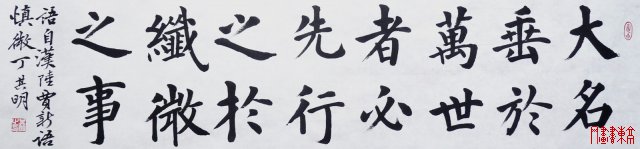 大名
垂於
萬世
者必
先行
之於
纖微
之事
語自漢陸賈新語
慎微丁其明